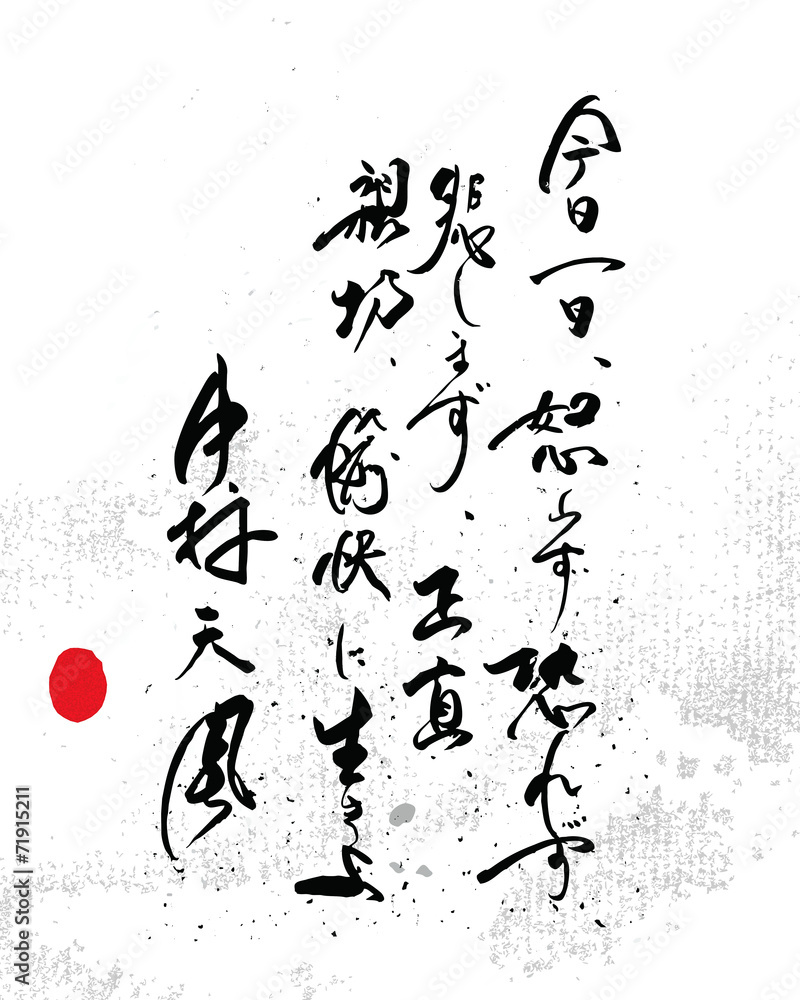 今日一日、怒らず恐れず
悲しまず、正直
親切、愉快に生きよ
中村天風
Adobe Stock | #71915211